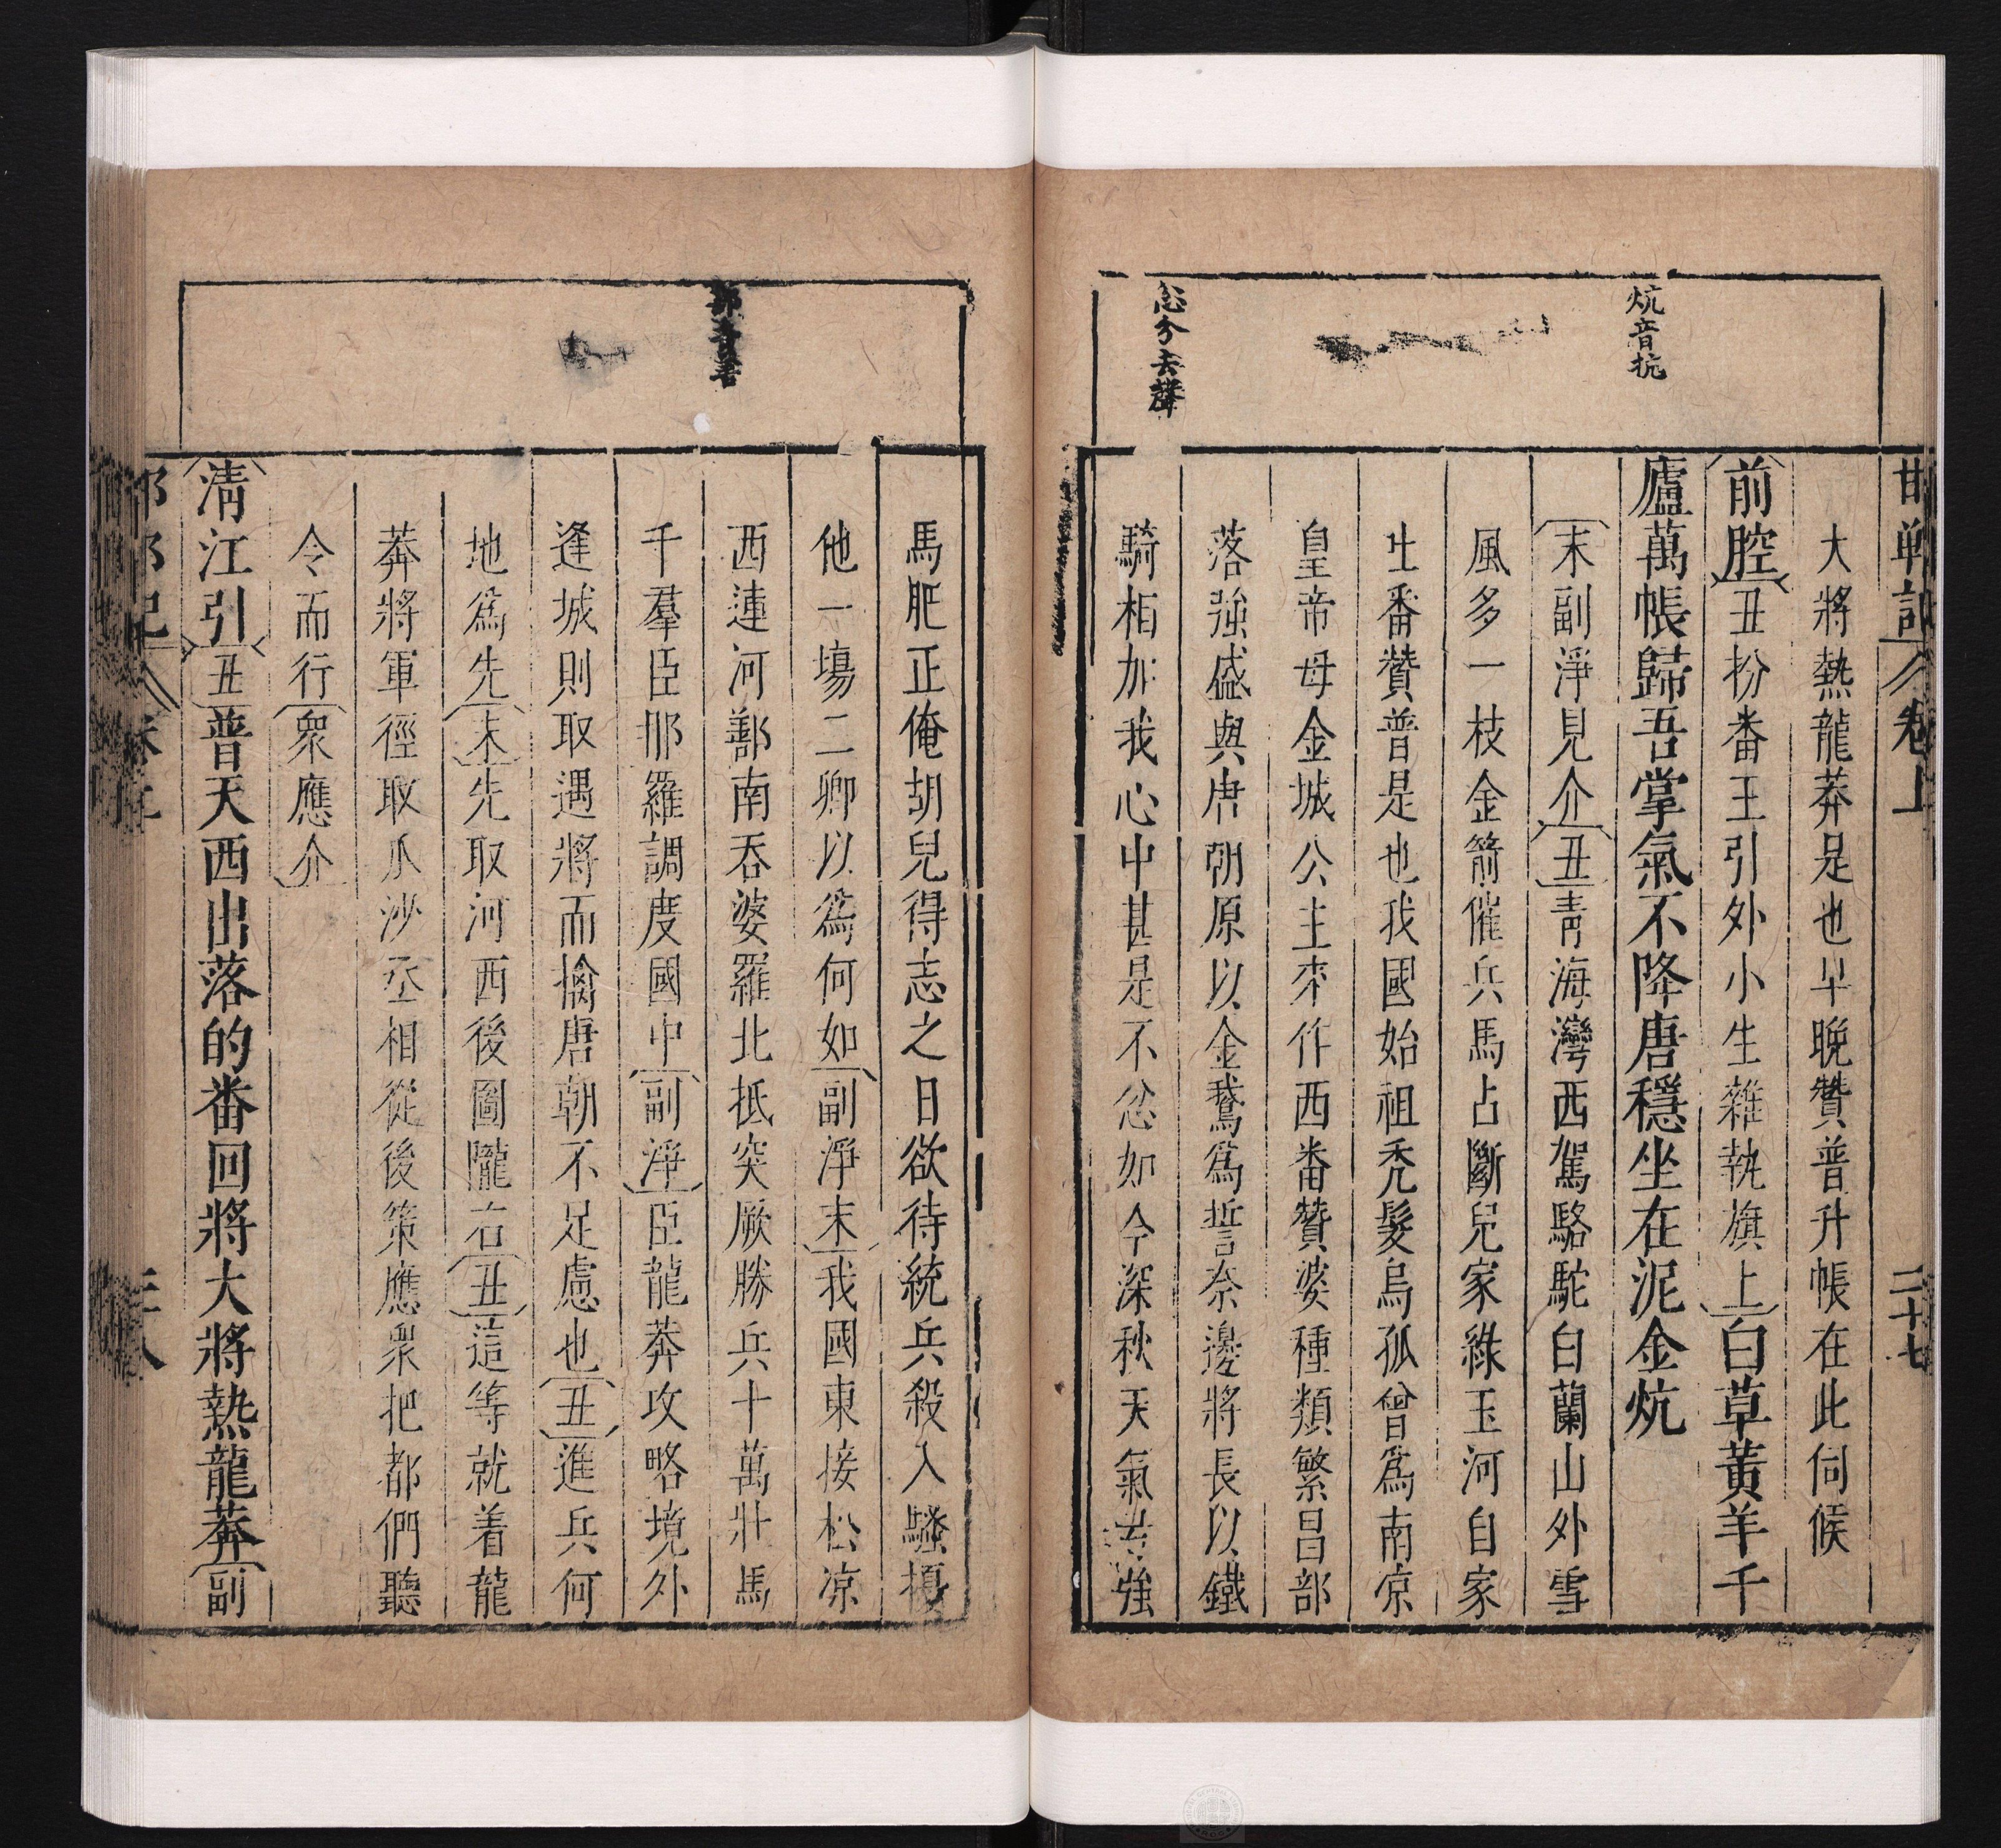 邯鄲記 卷上 二十七
炕音抗
忿分去聲
大將熱龍莽是也早晚贊普升帳在此伺候
前腔丑扮番王引外小生雜執旗上白草黃羊千
廬萬帳歸吾掌氣不降唐穩坐在泥金炕
末副淨見介丑青海灣西駕駱駝白蘭山外雪
風多一枝金箭催兵馬占斷兒家綠玉河自家
𡈽番贊普是也我國始祖禿髮烏孤曾爲南凉
皇帝母金城公主來作西番贊婆種類繁昌部
落強盛與唐朝原以金鵝爲誓奈邊將長以鐵
騎相加我心中甚是不忿如今深秋天氣強
鄯音善
馬肥正俺胡兒得志之日欲待統兵殺入騷擾
他一場二卿以爲何如副淨末我國東接松凉
西連河鄯南吞婆羅北抵突厥勝兵十萬壯馬
千羣臣那羅調度國中副淨臣龍莽攻略境外
逢城則取遇將而擒唐朝不足慮也丑進兵何
地爲先末先取河西後圖隴右丑這等就着龍
莽將軍徑取瓜沙丞相從後策應衆把都們聽
令而行衆應介
淸江引丑普天西出落的番回將大將熱龍莽副